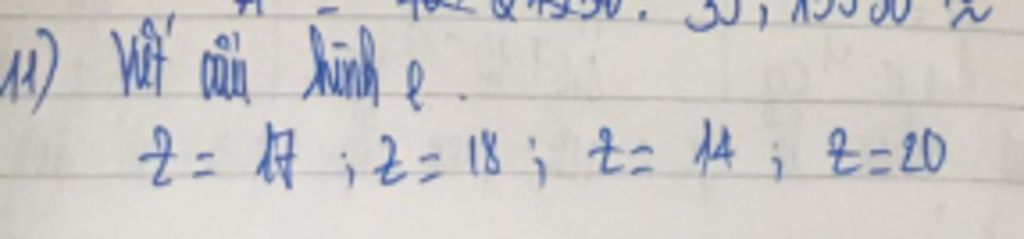 11) Viết cấu hình e.
Z = 17 ; Z = 18 ; Z = 14 ; Z = 20